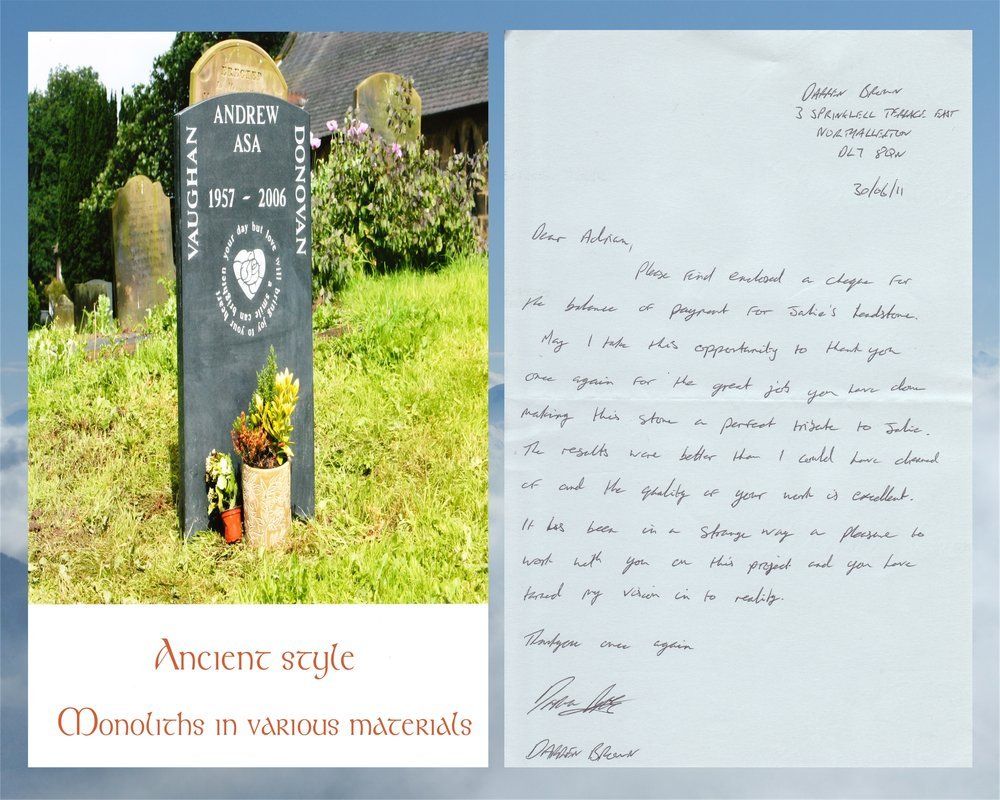 ERECTED
ANDREW
ASA
VAUGHAN
DONOVAN
1957 - 2006
a smile can brighten your day but love will bring joy to your heart
Ancient style
Monoliths in various materials
DARREN BROWN
3 SPRINGWELL TERRACE EAST
NORTHALLERTON
DL7 8QN
30/06/11
Dear Adrian,
Please find enclosed a cheque for
the balance of payment for Jakie's headstone.
May I take this opportunity to thank you
once again for the great job you have done
making this stone a perfect tribute to Jakie.
The results were better than I could have dreamed
of and the quality of your work is excellent.
It has been in a strange way a pleasure to
work with you on this project and you have
turned my vision in to reality.
Thankyou once again
DARREN BROWN